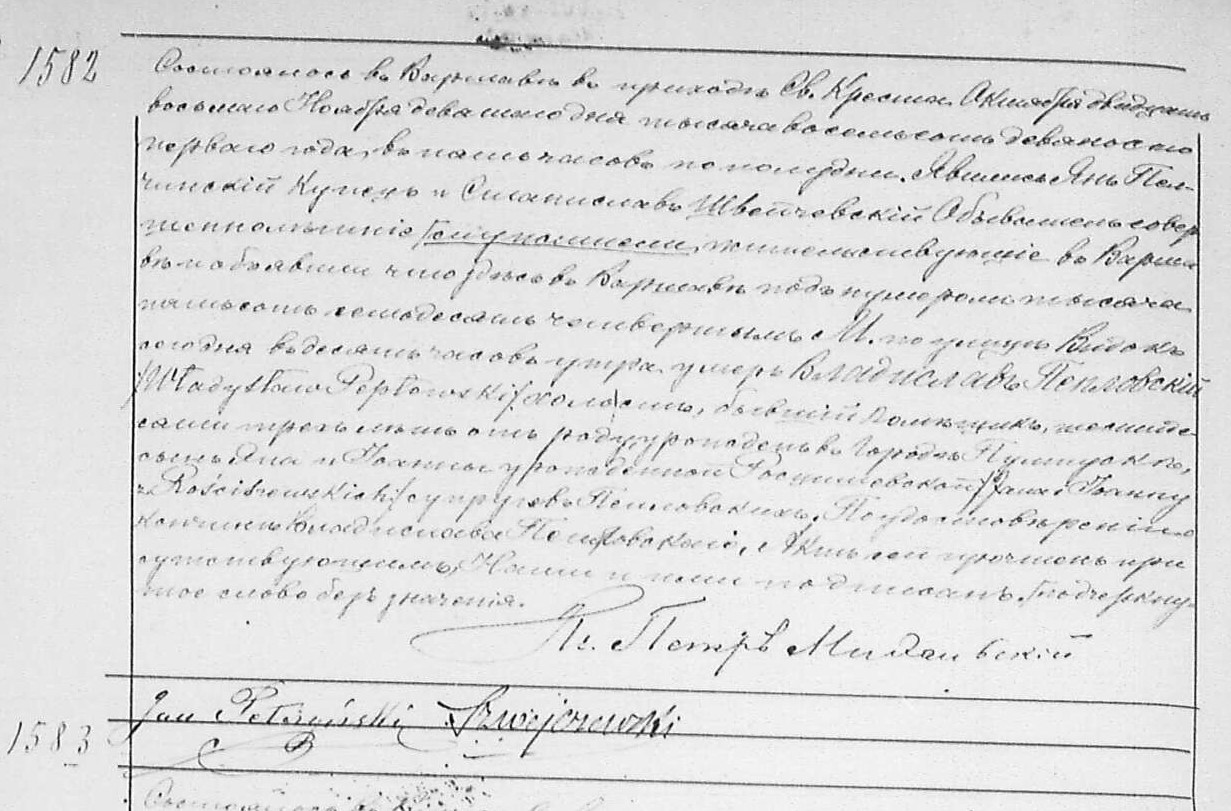 1582
Состоялось въ Варшавѣ въ приходѣ Св. Креста Октября двадцать
восьмаго Ноября девятаго дня тысяча восемьсотъ девяносто
перваго года, въ пять часовъ по полудни. Явились Янъ Пол-
чинскій Купецъ и Станиславъ Швейчевскій Обыватель совер
шеннолѣтніе жительствующіе въ Варша
вѣ и объявили что здѣсь въ Варшавѣ подъ нумеромъ тысяча
пятьсотъ семьдесятъ четвертымъ М. по улицѣ Видокъ
сегодня въ десять часовъ утра умеръ Владиславъ Пепловскій
/Władysław Pepłowski/ холостъ, бывшій помѣщикъ, шестиде
сяти трехъ лѣтъ отъ роду уроженъ въ Городѣ Пултускѣ,
сынъ Яна и Іоанны урожденной Ростишевской /Jana i Joanny
z Rościszewskich/ супруговъ Пепловскихъ. По удостовѣреніи о
кончинѣ Владислава Пепловскаго, Актъ сей прочтенъ при
сутствующимъ, Нами и ими подписанъ. Подчеркну-
тое слово безъ значенія.
Петръ
Jan Szwejczewski
1583
Состоялось въ